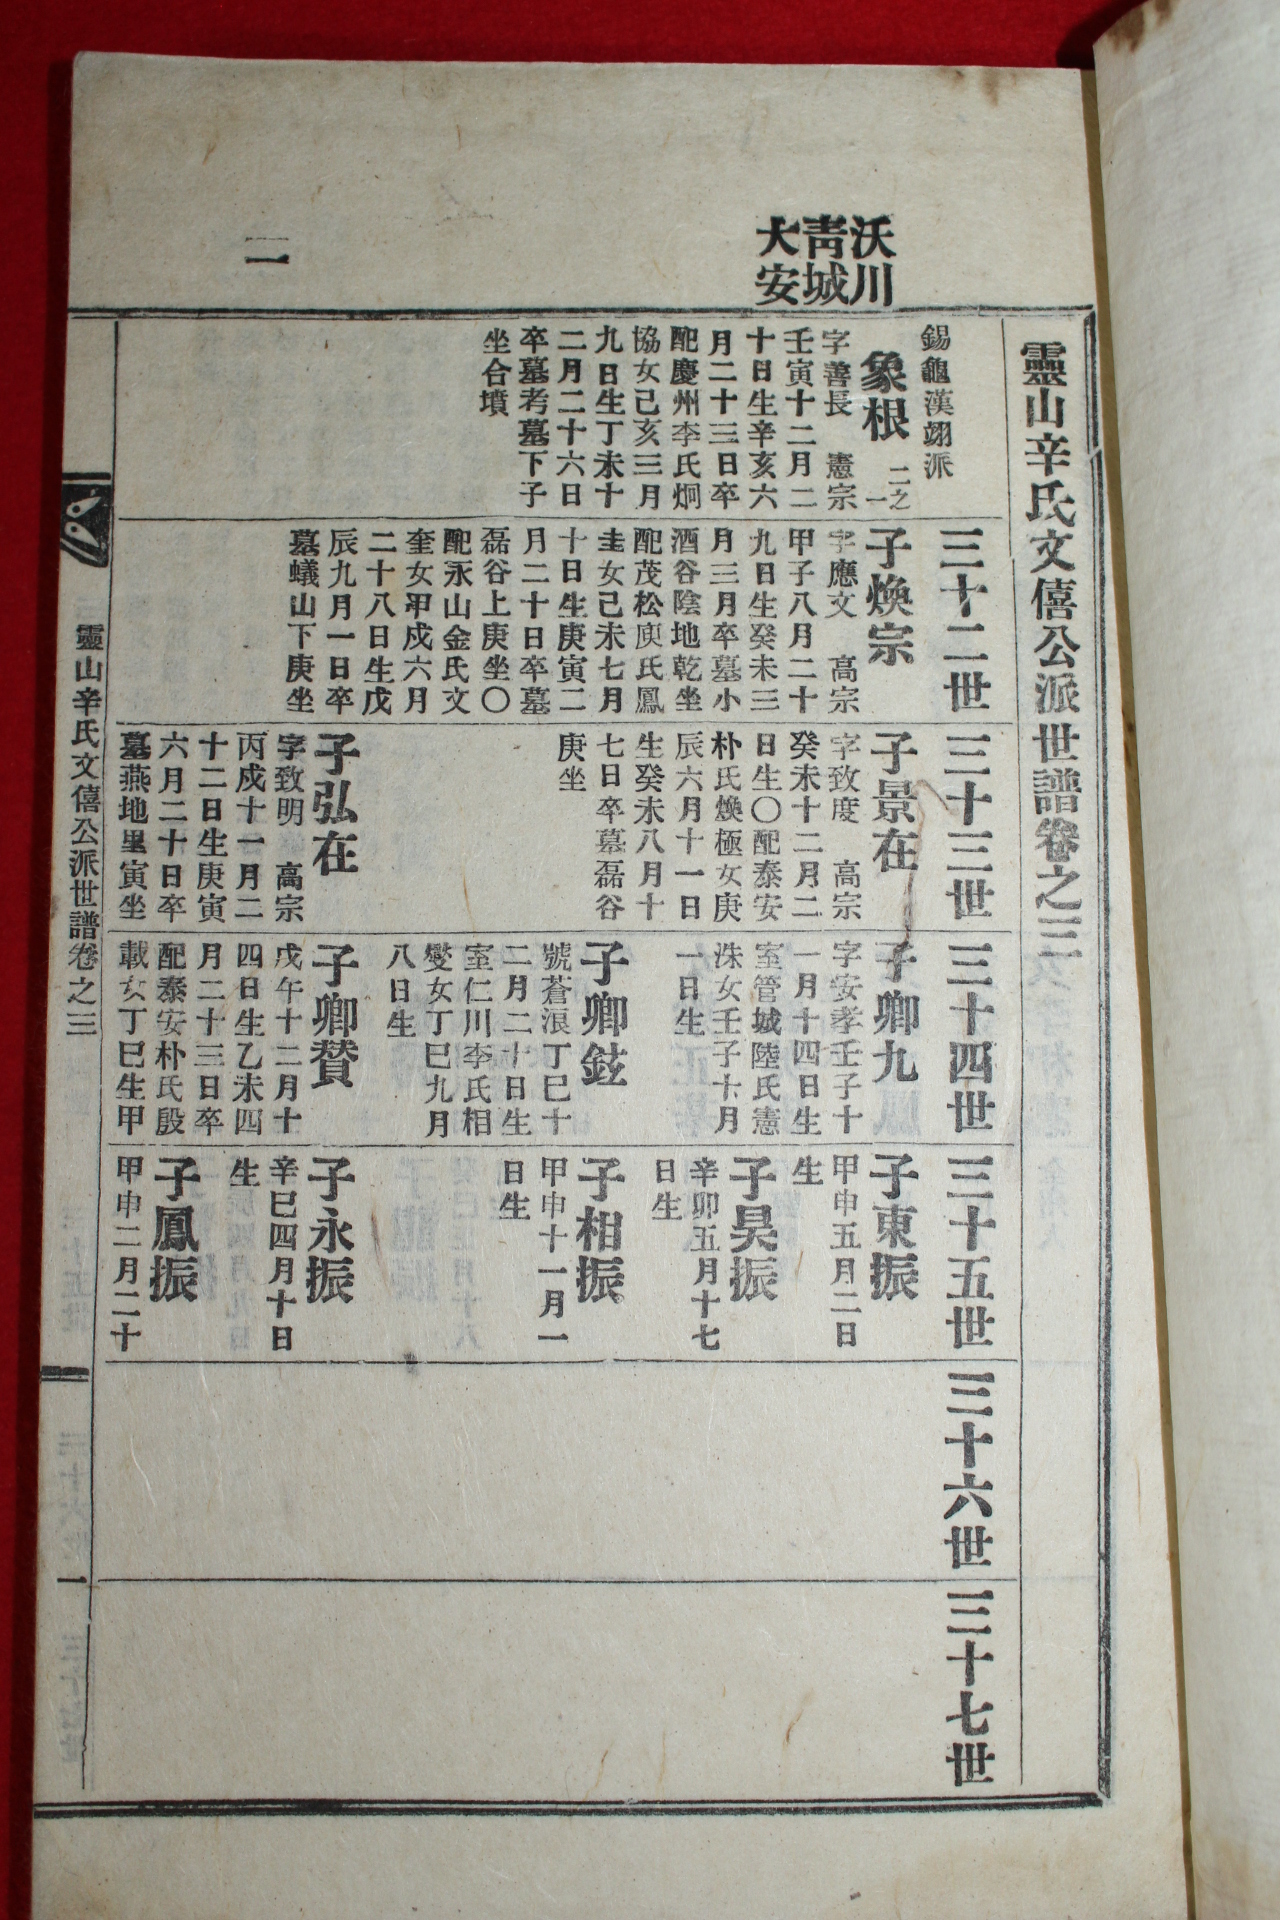 沃川
靑城
大安
二
靈山辛氏文僖公派世譜卷之三
錫龜漢翊派
象根 二之一
字善長 憲宗
壬寅十二月二
十日生辛亥六
月二十三日卒
配慶州李氏炯
協女己亥三月
九日生丁未十
二月二十六日
卒墓考墓下子
坐合墳
三十二世
子煥宗
字應文 高宗
甲子八月二十
九日生癸未三
月三月卒墓小
酒谷陰地乾坐
配茂松庾氏鳳
圭女己未七月
十日生庚寅二
月二十日卒墓
磊谷上庚坐〇
配永山金氏文
奎女甲戌六月
二十八日生戊
辰九月一日卒
墓蟻山下庚坐
三十三世
子景在
字致度 高宗
癸未十二月二
日生〇配泰安
朴氏煥極女庚
辰六月十一日
生癸未八月十
七日卒墓磊谷
庚坐
子弘在
字致明 高宗
丙戌十一月二
十二日生庚寅
六月二十日卒
墓燕地里寅坐
三十四世
子卿九
字安孝壬子十
一月十四日生
室管城陸氏憲
洙女壬子十月
一日生
子卿鉉
號蒼浪丁巳十
二月二十日生
室仁川李氏相
燮女丁巳九月
八日生
子卿賛
戊午十二月十
四日生乙未四
月二十三日卒
配泰安朴氏殷
載女丁巳生甲
三十五世
子東振
甲申五月二日
生
子昊振
辛卯五月十七
日生
子相振
甲申十一月一
日生
子永振
辛巳四月十日
生
子鳳振
甲申二月二十
三十六世
三十七世
靈山辛氏文僖公派世譜卷之三
一